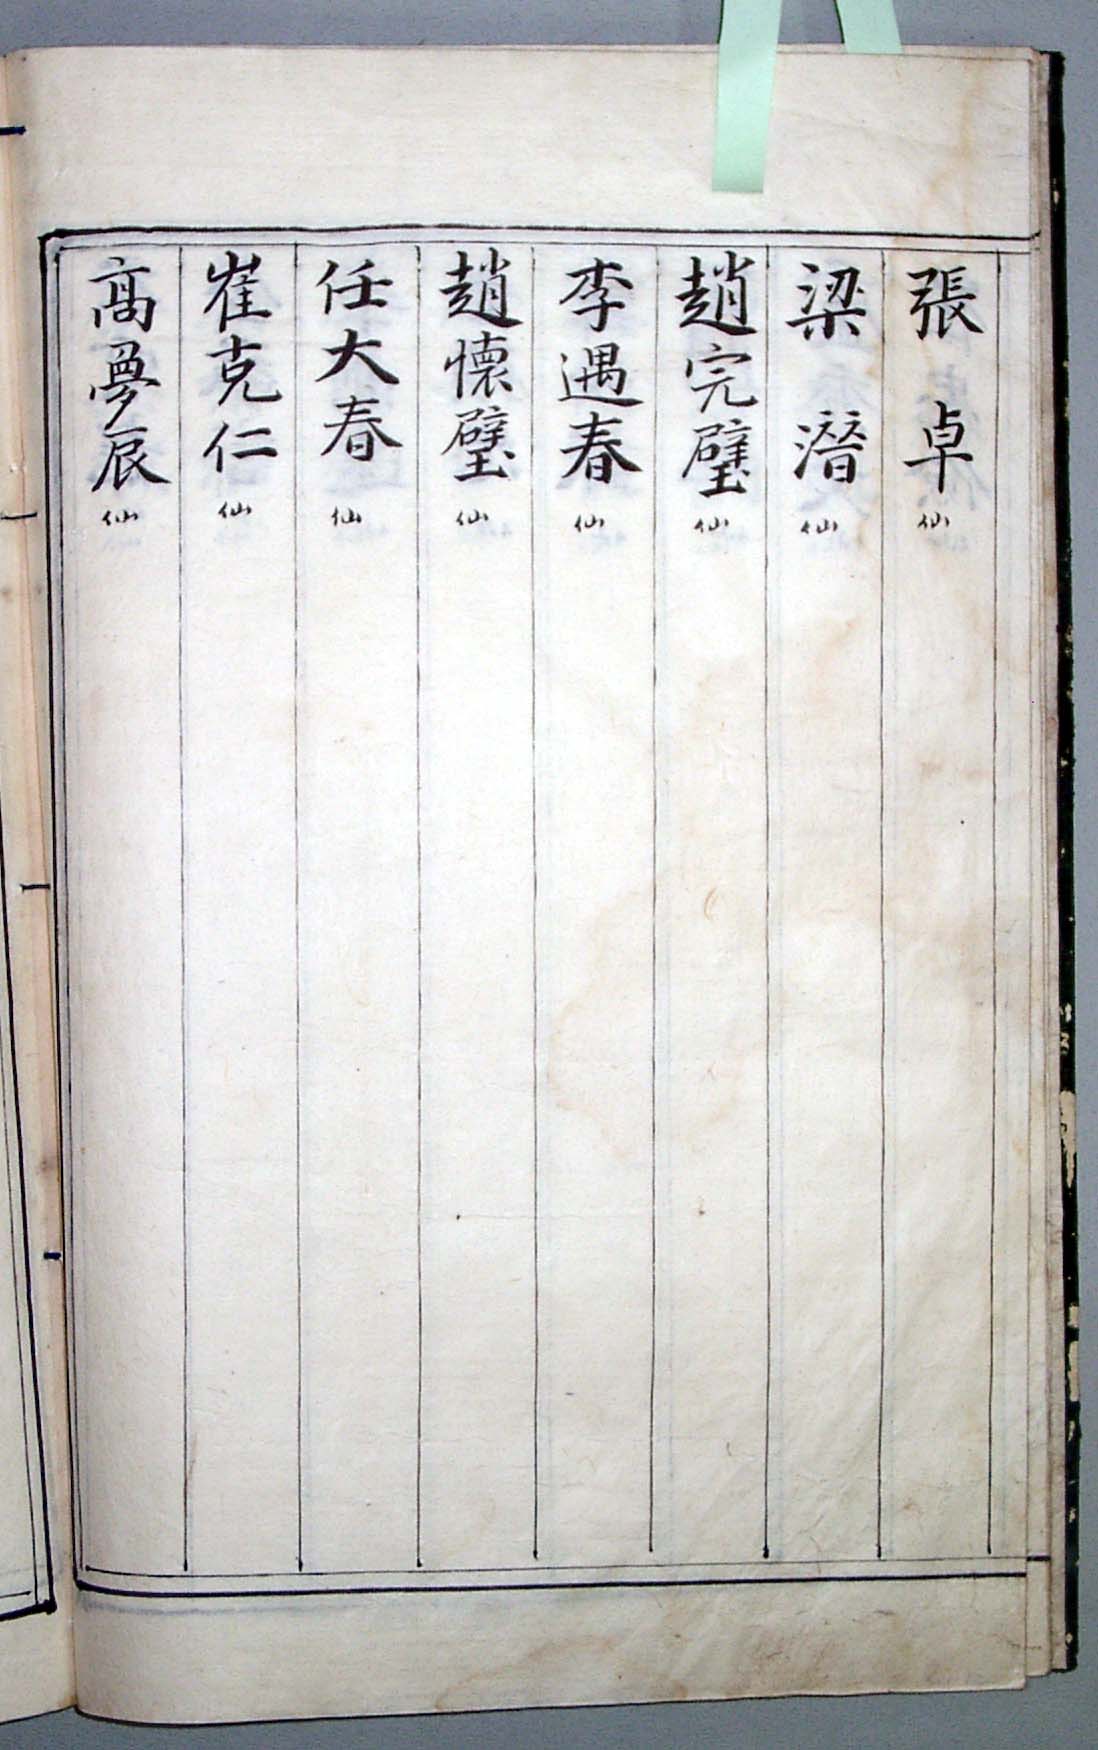 張卓仙
梁潛仙
趙完璧仙
李遇春仙
趙懷璧仙
任大春仙
崔克仁仙
高夢辰仙